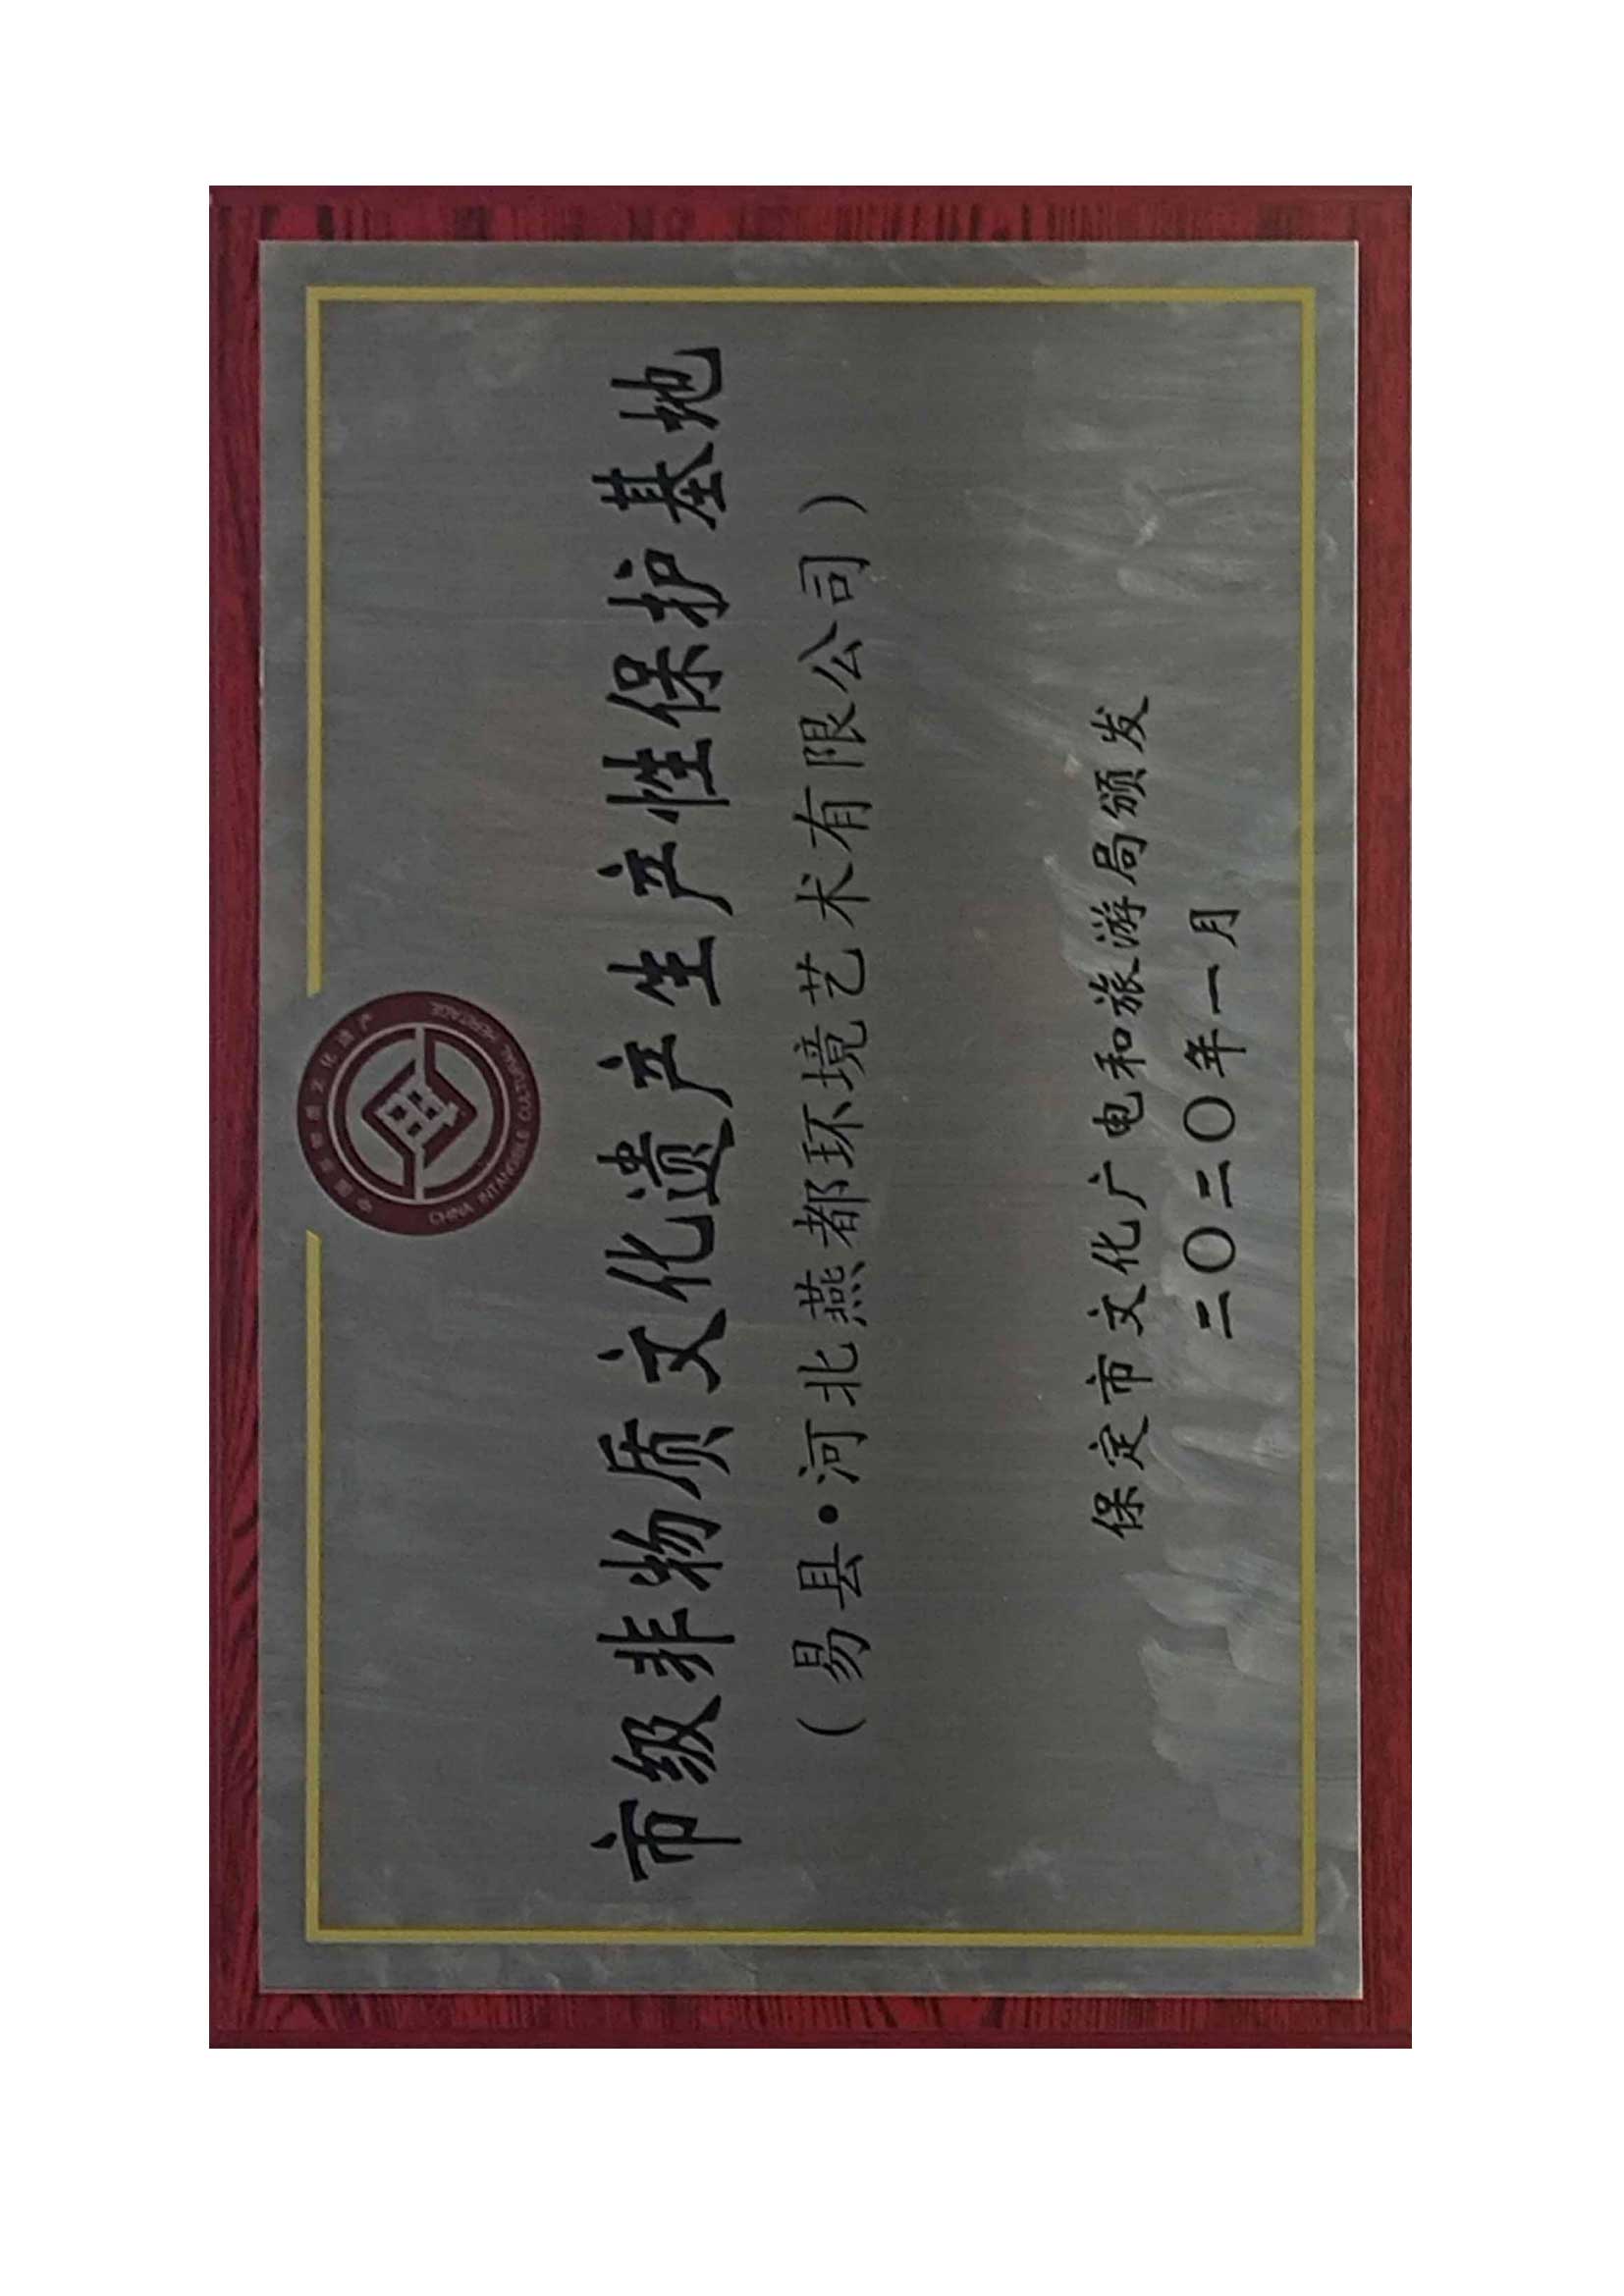 中国非物质文化遗产
CHINA INTANGIBLE CULTURAL HERITAGE
市级非物质文化遗产生产性保护基地
（易县•河北燕都环境艺术有限公司）
保定市文化广电和旅游局颁发
二〇二〇年一月